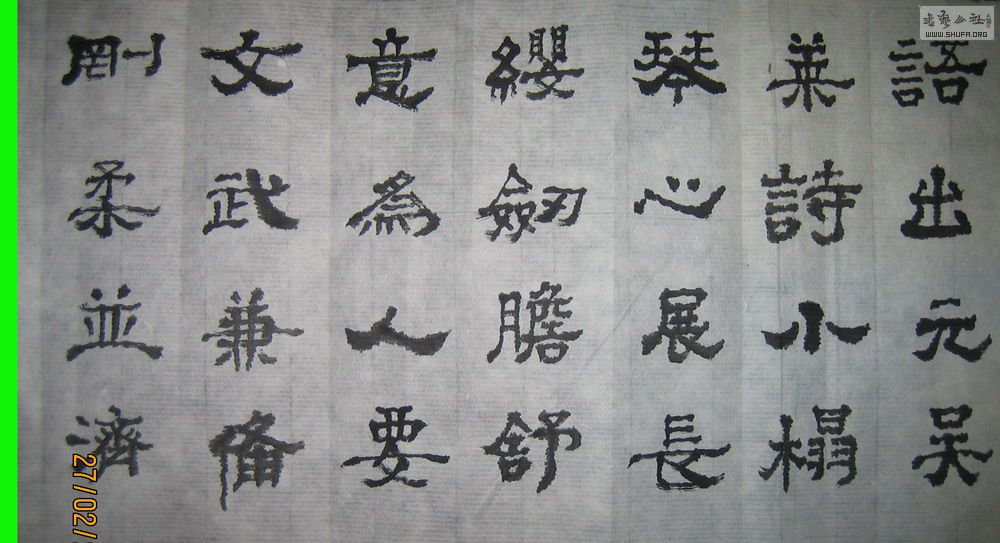 語出元吴
莱詩小榻
琴心展長
纓劍膽舒
意為人要
文武兼備
剛柔並濟
书艺公社
WWW.SHUFA.ORG
27/02/